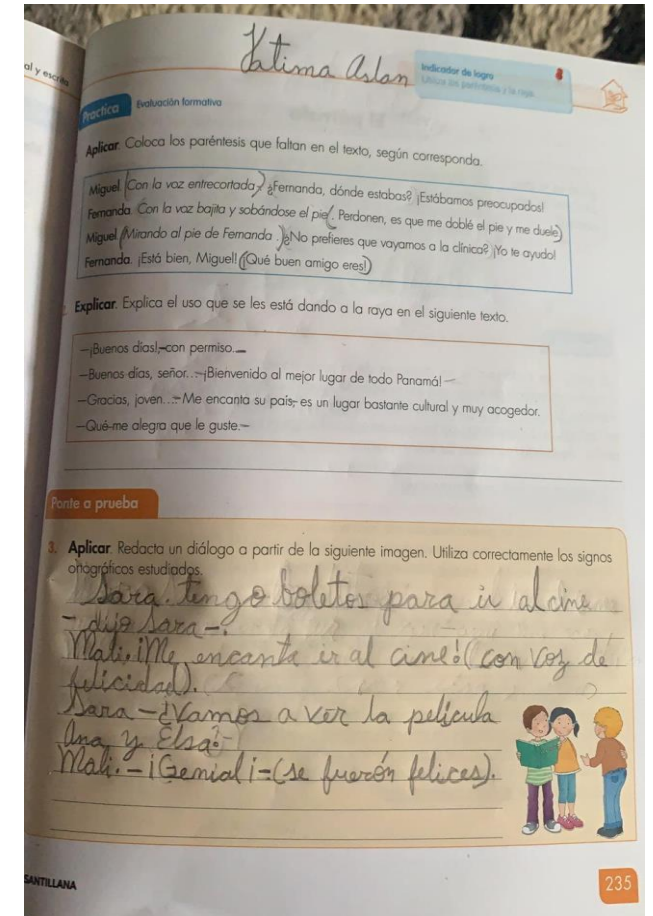 al y escrita
Fatima Aslan
Indicador de logro
Utiliza los paréntesis y la raya.
Practica Evaluación formativa
Aplicar. Coloca los paréntesis que faltan en el texto, según corresponda.
Miguel. (Con la voz entrecortada). ¿Fernanda, dónde estabas? ¡Estábamos preocupados!
Fernanda. Con la voz bajita y sobándose el pie(. Perdonen, es que me doblé el pie y me duele)
Miguel (Mirando al pie de Fernanda .) ¿No prefieres que vayamos a la clínica? ¡Yo te ayudo!
Fernanda. ¡Está bien, Miguel! (¡Qué buen amigo eres!)
Explicar. Explica el uso que se les está dando a la raya en el siguiente texto.
—¡Buenos días!,—con permiso.—
—Buenos días, señor...—¡Bienvenido al mejor lugar de todo Panamá!—
—Gracias, joven...—Me encanta su país, es un lugar bastante cultural y muy acogedor.
—Qué me alegra que le guste.—
Ponte a prueba
3. Aplicar. Redacta un diálogo a partir de la siguiente imagen. Utiliza correctamente los signos
ortográficos estudiados.
Sara. tengo boletos para ir al cine
- dijo Sara -.
Mali. ¡Me encanta ir al cine! (con voz de
felicidad).
Sara - ¿Vamos a ver la película
Ana y Elsa?-
Mali. - ¡Genial¡ - (se fuerón felices).
SANTILLANA
235